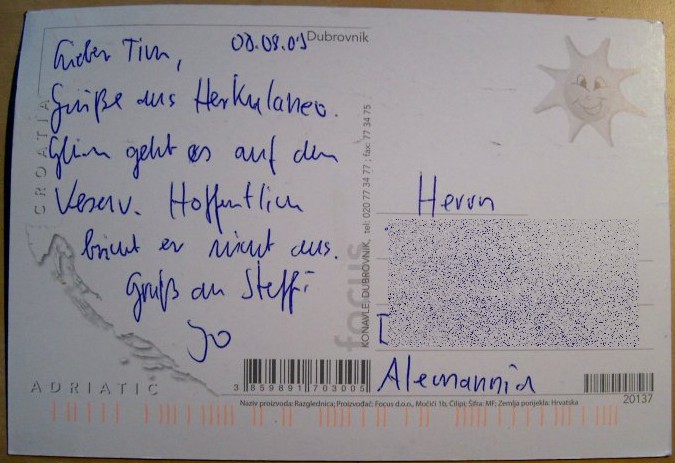 Dubrovnik
Lieber Tim,
Grüße aus Herkulaneo.
Gleich geht es auf den
Vesuv. Hoffentlich
bricht er nicht aus.
Gruß an Steffi
Jo
CROATIA
ADRIATIC
focus
KONAVLE, DUBROVNIK, tel: 020 77 34 77 ; fax: 77 34 75
Herrn
Alemannia
3 859891 703005
20137
Naziv proizvoda: Razglednica; Proizvođač: Focus d.o.o., Močići 1b, Čilipi; Šifra: MF; Zemlja porijekla: Hrvatska